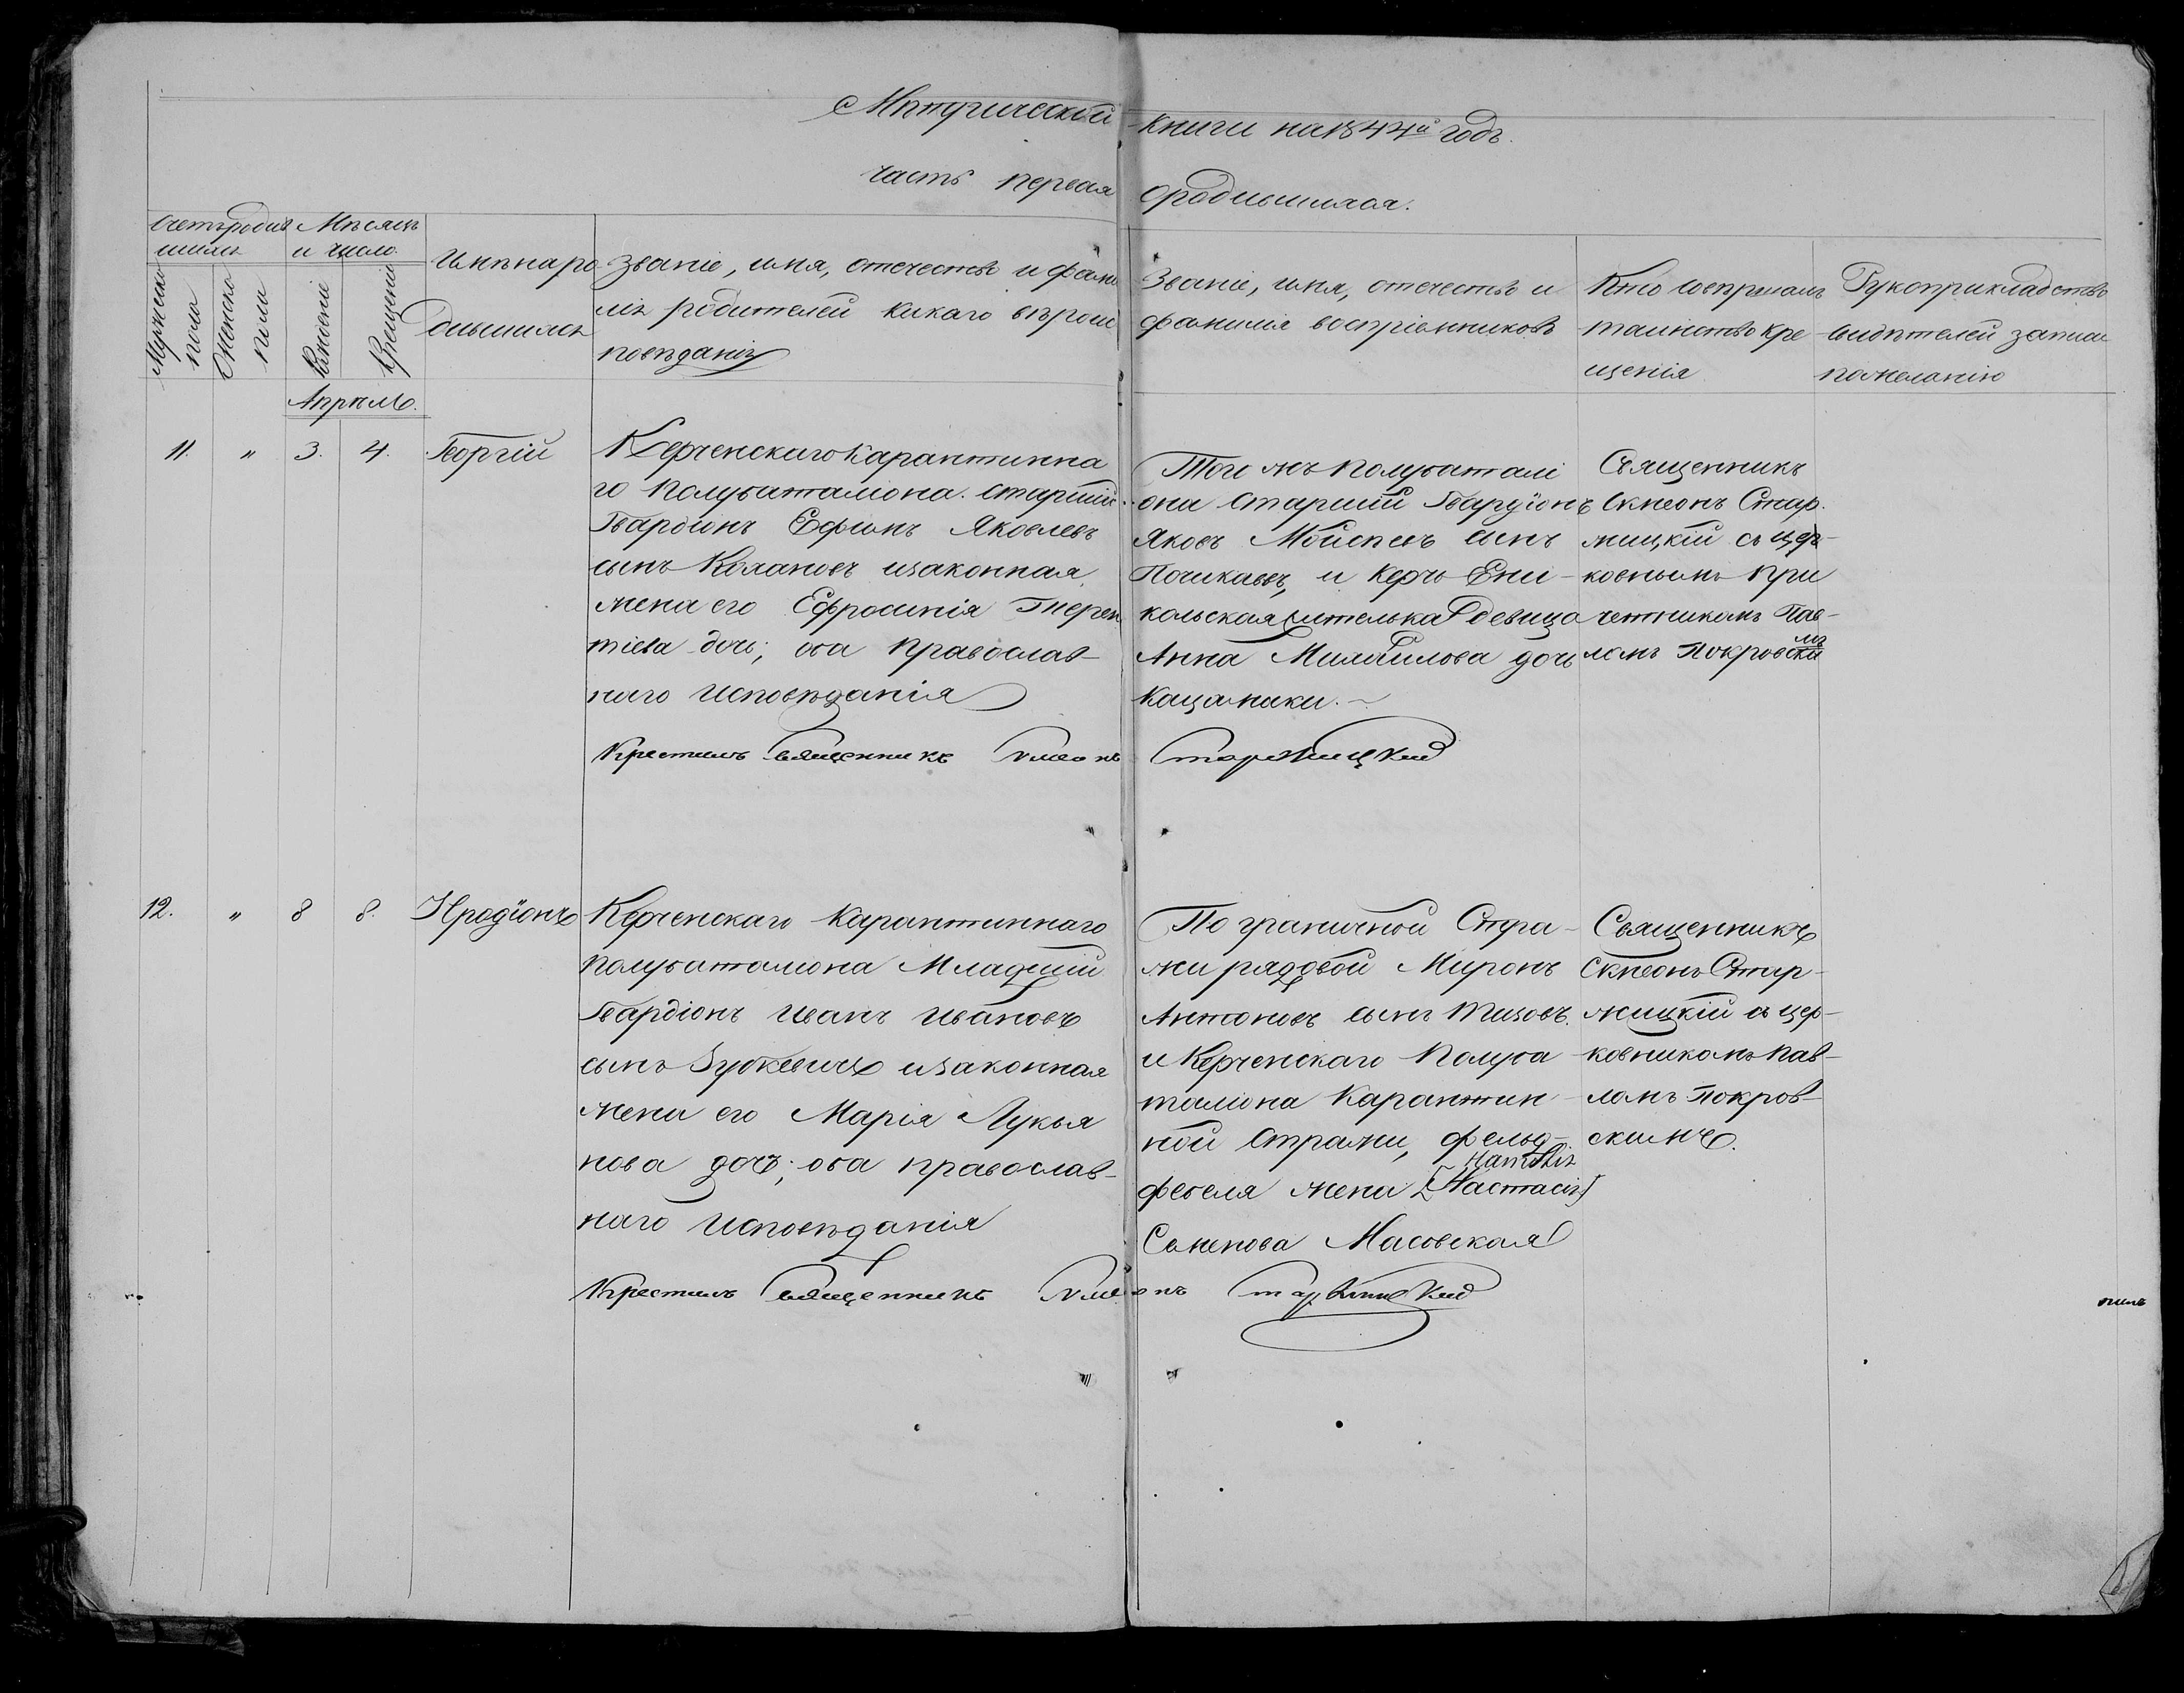 Мѣтрической книги на 1844й годъ.
часть первая о родившихся.
Счетъ родив
шихъ
Мужеско
пола
Женско
пола
Мѣсяцъ
и число.
Рожденіе
Крещеніе
Имѣна ро
дившихъ
Званіе, имя, отечество и фами
лія родителей какаго вѣроис
повѣданія
Званіе, имя, отечество и
фамилія воспріемниковъ
Кто совершалъ
таинство кре
щенія
Рукоприкладство
свидѣтелей записи
по желанію
Апрѣль.
11. " 3. 4. Георгій
Керченскаго Карантинна
го Полубаталіона. старшій
Гвардіонъ Ефимъ Яковлевъ
сынъ Колановъ и законная
жена его Ефросинія Терен
тіева дочь; оба Православ-
наго Исповѣданія
Того жъ Полубаталі
она Старшій Гвардіонъ
Яковъ Мойсѣевъ сынъ
Почикаевъ, и Керчь Ени-
кольская жителька девица
Анна Михайлова дочь
Кацанаки.
Священникъ
Симеонъ Стар-
жицкій съ цер-
ковнымъ при
четникомъ Пав-
ломъ Покровски
мъ
Крестилъ Священникъ Симеонъ Старжицкій
12. " 8 8. Иродіонъ
Керченскаго Карантиннаго
полубаталіона Младшій
Гвардіонъ Иванъ Ивановъ
сынъ Зубкевичъ и законная
жена его Марія Лукья
нова дочь; оба православ-
наго Исповѣданія
По граничной Стра-
жи рядовой Миронъ
Антоновъ сынъ Тизовъ.
и Керченскаго Полуба
таліона Карантин-
ной Стражи, фельд-
фебеля жена [Настасія]
Семенова Масовская
Священникъ
Симеонъ Стар-
жицкій съ цер-
ковникомъ Пав-
ломъ Покров-
скимъ.
Крестилъ Священникъ Симеонъ Старжицкій